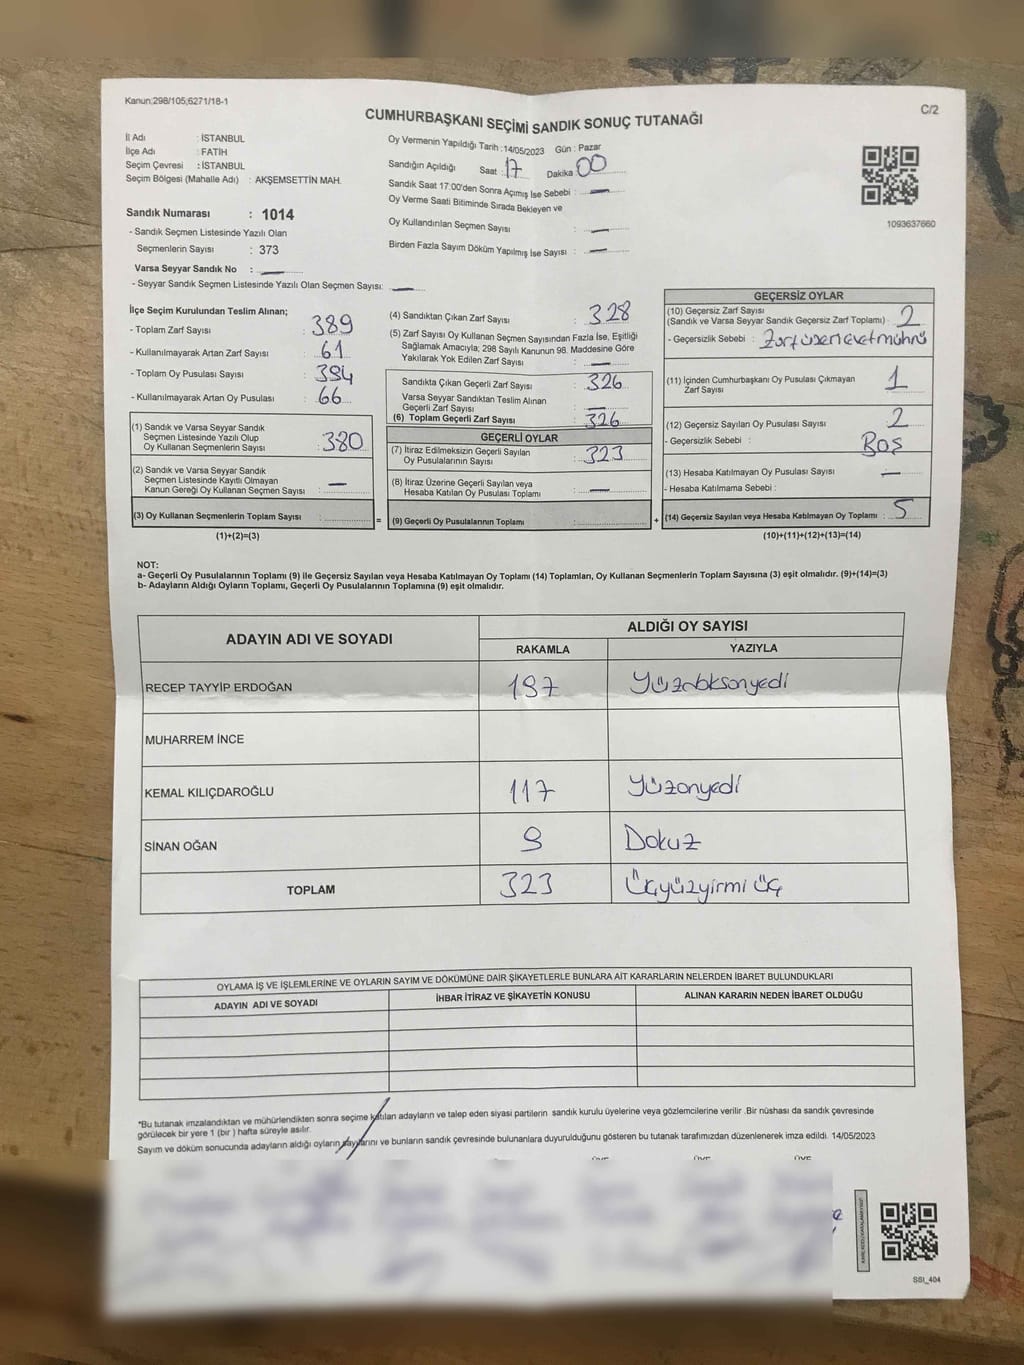 Kanun:298/105;6271/18-1
C/2
CUMHURBAŞKANI SEÇİMİ SANDIK SONUÇ TUTANAĞI
İl Adı : İSTANBUL
İlçe Adı : FATİH
Seçim Çevresi : İSTANBUL
Seçim Bölgesi (Mahalle Adı) : AKŞEMSETTİN MAH.
Sandık Numarası : 1014
- Sandık Seçmen Listesinde Yazılı Olan
Seçmenlerin Sayısı : 373
Varsa Seyyar Sandık No : —
- Seyyar Sandık Seçmen Listesinde Yazılı Olan Seçmen Sayısı: —
Oy Vermenin Yapıldığı Tarih :14/05/2023 Gün : Pazar
Sandığın Açıldığı Saat : 17 Dakika 00
Sandık Saat 17:00'den Sonra Açımış İse Sebebi : —
Oy Verme Saati Bitiminde Sırada Bekleyen ve
Oy Kullandırılan Seçmen Sayısı : —
Birden Fazla Sayım Döküm Yapılmış İse Sayısı : —
1093637660
İlçe Seçim Kurulundan Teslim Alınan;
- Toplam Zarf Sayısı : 389
- Kullanılmayarak Artan Zarf Sayısı : 61
- Toplam Oy Pusulası Sayısı : 394
- Kullanılmayarak Artan Oy Pusulası : 66
(1) Sandık ve Varsa Seyyar Sandık
Seçmen Listesinde Yazılı Olup
Oy Kullanan Seçmenlerin Sayısı : 380
(2) Sandık ve Varsa Seyyar Sandık
Seçmen Listesinde Kayıtlı Olmayan
Kanun Gereği Oy Kullanan Seçmen Sayısı : —
(3) Oy Kullanan Seçmenlerin Toplam Sayısı :
=
(1)+(2)=(3)
(4) Sandıktan Çıkan Zarf Sayısı : 328
(5) Zarf Sayısı Oy Kullanan Seçmen Sayısından Fazla İse, Eşitliği
Sağlamak Amacıyla; 298 Sayılı Kanunun 98. Maddesine Göre
Yakılarak Yok Edilen Zarf Sayısı : —
Sandıkta Çıkan Geçerli Zarf Sayısı : 326
Varsa Seyyar Sandıktan Teslim Alınan
Geçerli Zarf Sayısı : —
(6) Toplam Geçerli Zarf Sayısı : 326
GEÇERLİ OYLAR
(7) İtiraz Edilmeksizin Geçerli Sayılan
Oy Pusulalarının Sayısı : 323
(8) İtiraz Üzerine Geçerli Sayılan veya
Hesaba Katılan Oy Pusulası Toplamı : —
(9) Geçerli Oy Pusulalarının Toplamı :
+
GEÇERSİZ OYLAR
(10) Geçersiz Zarf Sayısı
(Sandık ve Varsa Seyyar Sandık Geçersiz Zarf Toplamı) : 2
- Geçersizlik Sebebi : Zarf üzeri evet mührü
(11) İçinden Cumhurbaşkanı Oy Pusulası Çıkmayan
Zarf Sayısı : 1
(12) Geçersiz Sayılan Oy Pusulası Sayısı : 2
- Geçersizlik Sebebi : Boş
(13) Hesaba Katılmayan Oy Pusulası Sayısı : —
- Hesaba Katılmama Sebebi :
(14) Geçersiz Sayılan veya Hesaba Katılmayan Oy Toplamı : 5
(10)+(11)+(12)+(13)=(14)
NOT:
a- Geçerli Oy Pusulalarının Toplamı (9) ile Geçersiz Sayılan veya Hesaba Katılmayan Oy Toplamı (14) Toplamları, Oy Kullanan Seçmenlerin Toplam Sayısına (3) eşit olmalıdır. (9)+(14)=(3)
b- Adayların Aldığı Oyların Toplamı, Geçerli Oy Pusulalarının Toplamına (9) eşit olmalıdır.
ADAYIN ADI VE SOYADI
ALDIĞI OY SAYISI
RAKAMLA YAZIYLA
RECEP TAYYİP ERDOĞAN 197 Yüzdoksanyedi
MUHARREM İNCE
KEMAL KILIÇDAROĞLU 117 Yüzonyedi
SİNAN OĞAN 9 Dokuz
TOPLAM 323 Üçyüzyirmi üç
OYLAMA İŞ VE İŞLEMLERİNE VE OYLARIN SAYIM VE DÖKÜMÜNE DAİR ŞİKAYETLERLE BUNLARA AİT KARARLARIN NELERDEN İBARET BULUNDUKLARI
ADAYIN ADI VE SOYADI İHBAR İTİRAZ VE ŞİKAYETİN KONUSU ALINAN KARARIN NEDEN İBARET OLDUĞU
*Bu tutanak imzalandıktan ve mühürlendikten sonra seçime katılan adayların ve talep eden siyasi partilerin sandık kurulu üyelerine veya gözlemcilerine verilir .Bir nüshası da sandık çevresinde
görülecek bir yere 1 (bir ) hafta süreyle asılır.
Sayım ve döküm sonucunda adayların aldığı oyların sayılarını ve bunların sandık çevresinde bulunanlara duyurulduğunu gösteren bu tutanak tarafımızdan düzenlenerek imza edildi. 14/05/2023
ÜYE ÜYE ÜYE
SSI_404